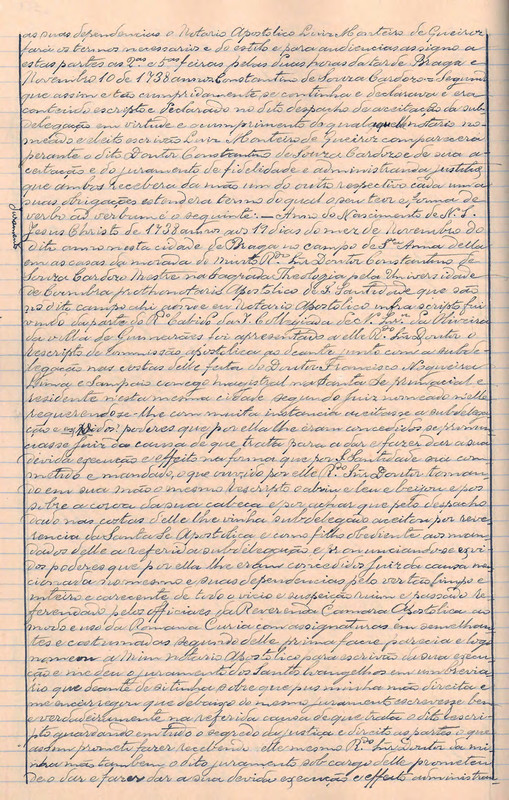 as suas dependencias o Notario Apostolico Luiz Monteiro de Queiroz
fará os termos necessarios e do estilo e para audiencias assigno a
estas partes as 2as e 5as feiras pelas duas horas da tarde Braga e
Novembro 10 de 1738 annos Constantino de Souza Cardozo = Segundo
que assim e tão cumpridamente se continha e declarava e era
conteudo escripto e declarado no dito despacho da aceitação da sub-
delegação em virtude e cumprimento do qual aquelle notario no-
meado e eleito escrivão Luiz Monteiro de Queiroz comparecera
perante o dito Doutor Constantino de Souza Cardozo e de sua a-
ceitação e do juramento de fidelidade e administrando justiça
que ambos recebera da mão um do outro respectivo cada um a
suas obrigações estendera termo do qual o seu teor e forma de
verbo ad verbum é o seguinte: — Anno do Nascimento de N. S.
Juramento
Jesus Christo de 1738 annos aos 19 dias do mez de Novembro do
dito anno nesta cidade de Braga no campo de Sta Anna della
em as casas da morada do muito Rdo Snr Doutor Constantino de
Souza Cardozo Mestre na Sagrada Theologia pela Universidade
de Coimbra prothonotario Apostolico de S. Santidade que são
no dito campo ahi aonde eu Notario Apostolico infrascripto fui
vindo da parte do Rdo Cabido da I. Collegiada de N. Sra da Oliveira
da villa de Guimarães foi apresentado a elle Rdo Snr Doutor o
rescripto de Commissão apostolica ao deante junto com a subde-
legação nas costas delle feita do Doutor Francisco Nogueira
Lima e Sampaio conego magistral na Santa Sé primacial e
residente nesta mesma cidade segundo Juiz nomeado nelle
requerendo-se-lhe com muita instancia aceitasse a subdelega-
ção e os poderes que por ella lhe eram concedidos se pronun-
ciasse juiz da causa de que trata para a dar e fazer dar a sua
devida execução e effeito na forma que por S. Santidade era com-
mettido e mandado, o que ouvido por elle Rdo Snr Doutor toman-
do em sua mão o mesmo rescripto o abriu e leu e beijou e pos
sobre a coroa da sua cabeça e por achar que pelo despacho
dado nas costas delle lhe vinha subdelegado aceitou por reve-
rencia da Santa Sé Apostolica e como filho obediente aos man-
dados della a referida subdelegação e pronunciando-se e ouvi-
dos poderes que por ella lhe eram concedidos juiz da causa men-
cionada no mesmo e suas dependencias pelo ver tão limpo e
inteiro e carecente de todo o vicio e suspeição ruim e passado re-
ferendado pelos officiaes da Reverenda Camara Apostolica ao
modo e uso da Romana Curia com assignaturas em semelhan-
tes e costumadas segundo delle prima facie parecia e logo
nomeou a Mim Notario Apostolico para escrivão da sua execu-
ção e me deu o juramento dos Santos Evangelhos em um brevia-
rio que deante de si tinha sobre que pus minha mão direita e
me encarregou que debaixo do mesmo juramento escrevesse bem
e verdadeiramente na referida causa de que trata o dito Rescri-
pto guardando em tudo o segredo da justiça e direito as partes o que
assim prometti fazer recebendo elle mesmo Rdo Snr Doutor da mi-
nha mão tambem o dito juramento sob cargo delle prometten-
do o dar e fazer dar a sua devida execução e effeito administran-